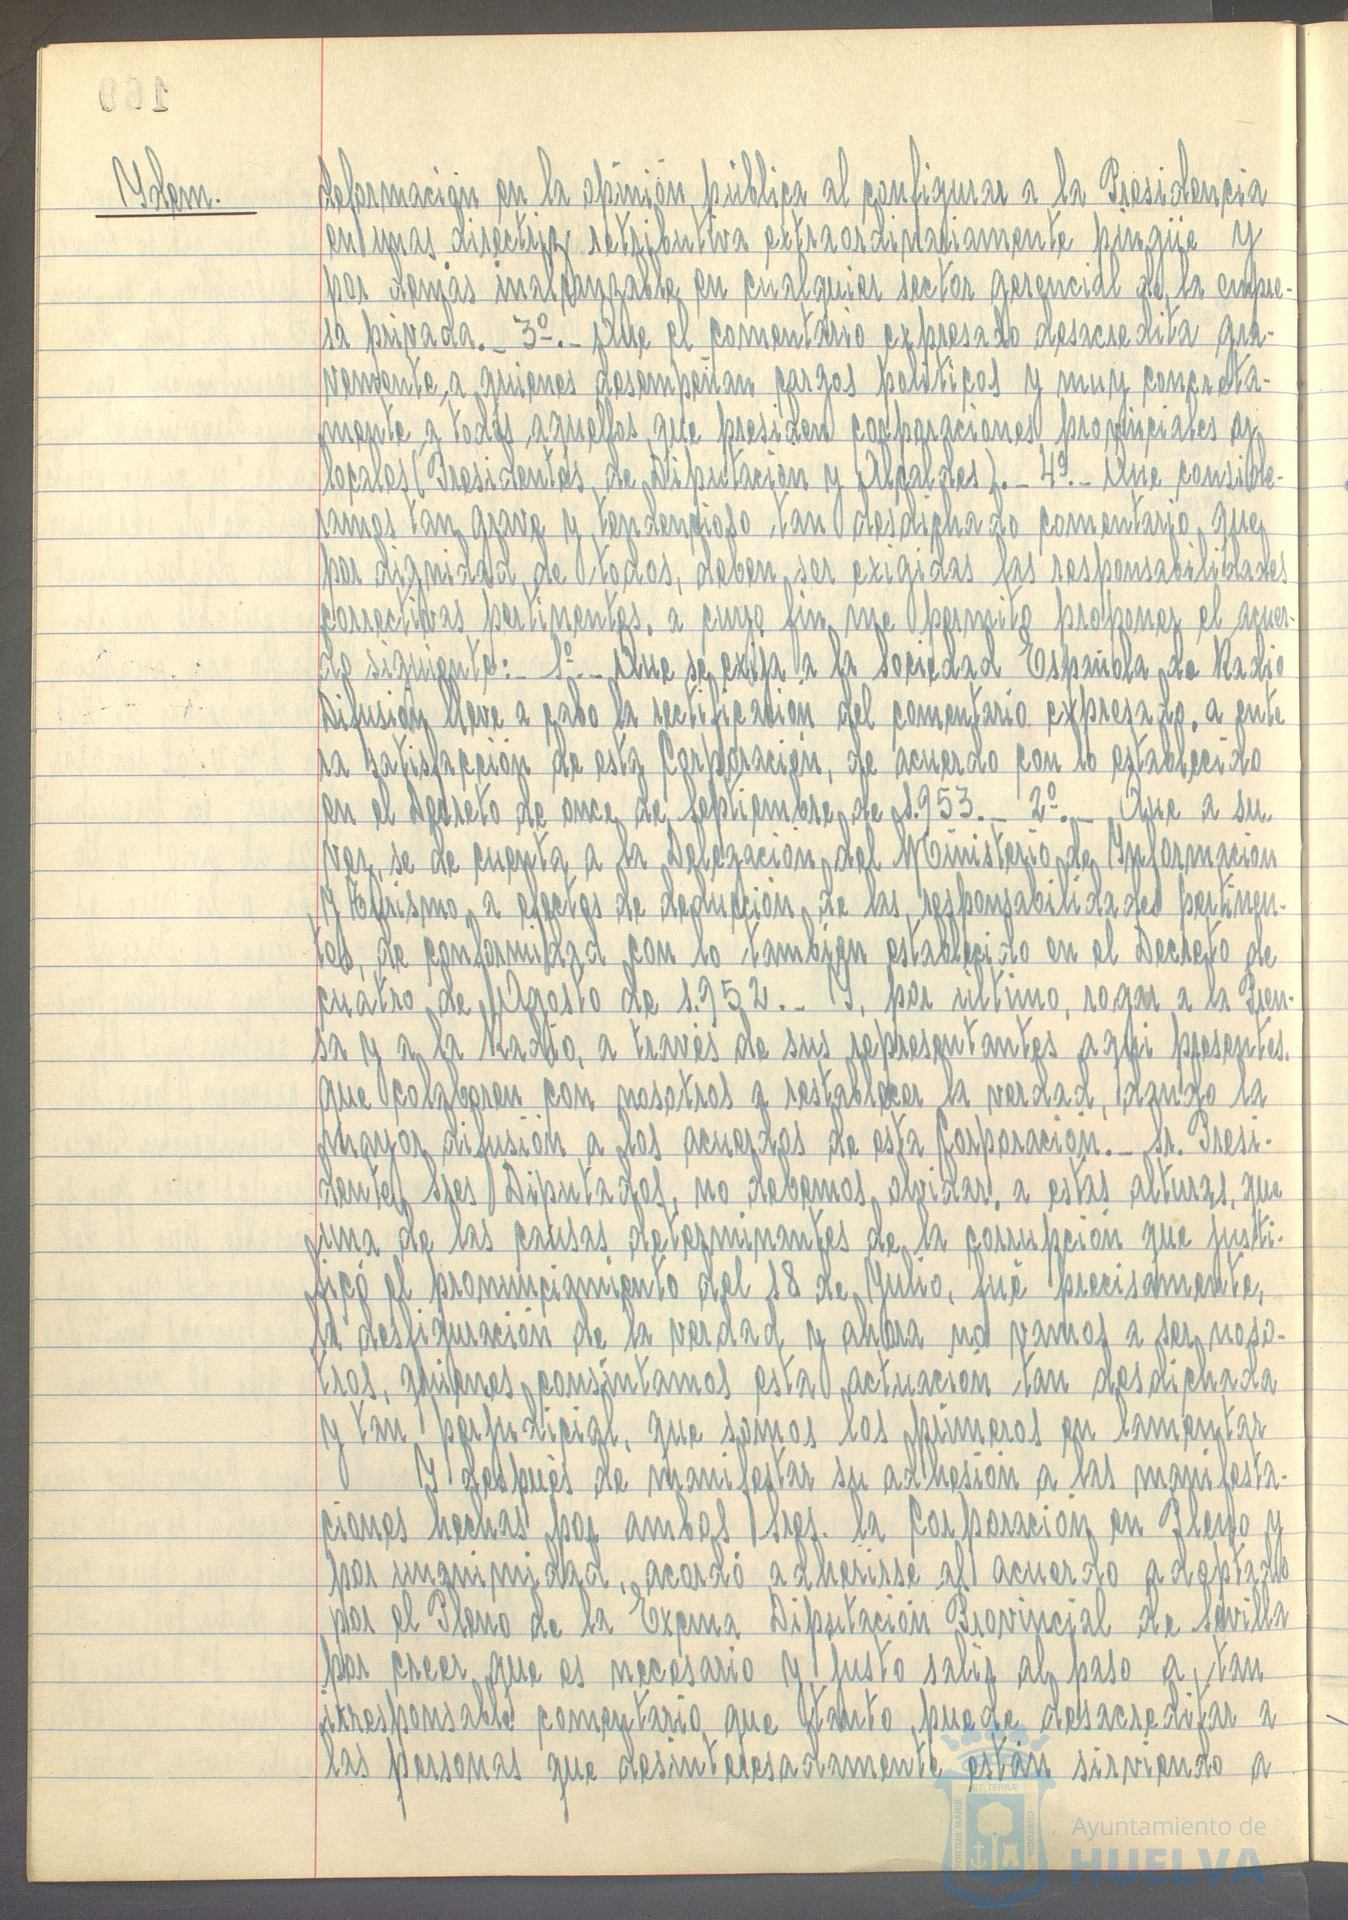 160
Ydem.
deformación en la opinión pública al configurar a la Presidencia
en unas directriz retributiva extraordinariamente pingüe y
por demás inalcanzable en cualquier sector gerencial de la empre-
sa privada._ 3º._ Que el comentario expresado desacredita gra-
vemente, a quienes desempeñan cargos políticos y muy concreta-
mente a todos aquellos que presiden corporaciones provinciales o
locales (Presidentes de Diputación y Alcaldes)._ 4º._ Que conside-
ramos tan grave y tendencioso tan desdichado comentario que
por dignidad de todos, deben ser exigidas las responsabilidades
correctivas pertinentes, a cuyo fin me permito proponer el acuer-
do siguiente:_ 1º._ Que se exija a la Sociedad Española de Radio
Difusión lleve a cabo la rectificación del comentario expresado, a ente
ra satisfacción de esta Corporación, de acuerdo con lo establecido
en el Decreto de once de septiembre de 1.953._ 2º._ Que a su
vez se de cuenta a la Delegación del Ministerio de Información
y Turismo a efectos de deducción de las responsabilidades pertinen-
tes, de conformidad con lo también establecido en el Decreto de
cuatro de Agosto de 1.952._ Y, por ultimo, rogar a la Pren-
sa y a la Radio, a través de sus representantes aqui presentes.
que colaboren con nosotros a restablecer la verdad, dando la
mayor difusión a los acuerdos de esta Corporación._ Sr. Presi-
dente, Sres Diputados, no debemos olvidar, a estas alturas, que
una de las causas determinantes de la corrupción que justi-
ficó el pronunciamiento del 18 de Julio, fué precisamente,
la desfiguración de la verdad y ahora no vamos a ser noso-
tros, quienes consintamos esta actuación tan desdichada
y tan perjudicial, que somos los primeros en lamentar
Y después de manifestar su adhesión a las manifesta-
ciones hechas por ambos Sres. la Corporación en Pleno y
por unanimidad, acordó adherirse al acuerdo adoptado
por el Pleno de la Excma Diputación Provincial de Sevilla
por creer que es necesario y justo salir al paso a tan
irresponsable comentario que tanto puede desacreditar a
las personas que desinteresadamente están sirviendo a
PORTUS MARIS
ET TERRÆ
CUSTODIA
Ayuntamiento de
HUELVA